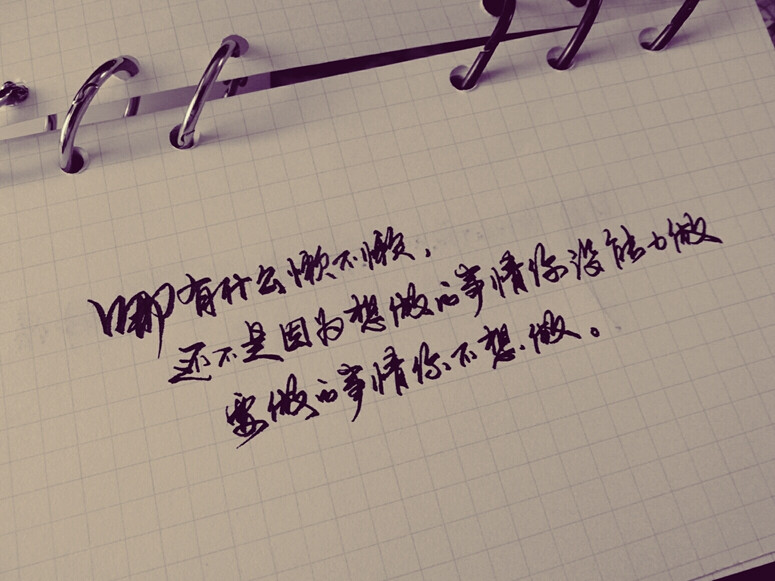 哪有什么懒不懒，
还不是因为想做的事情你没能力做
要做的事情你不想做。